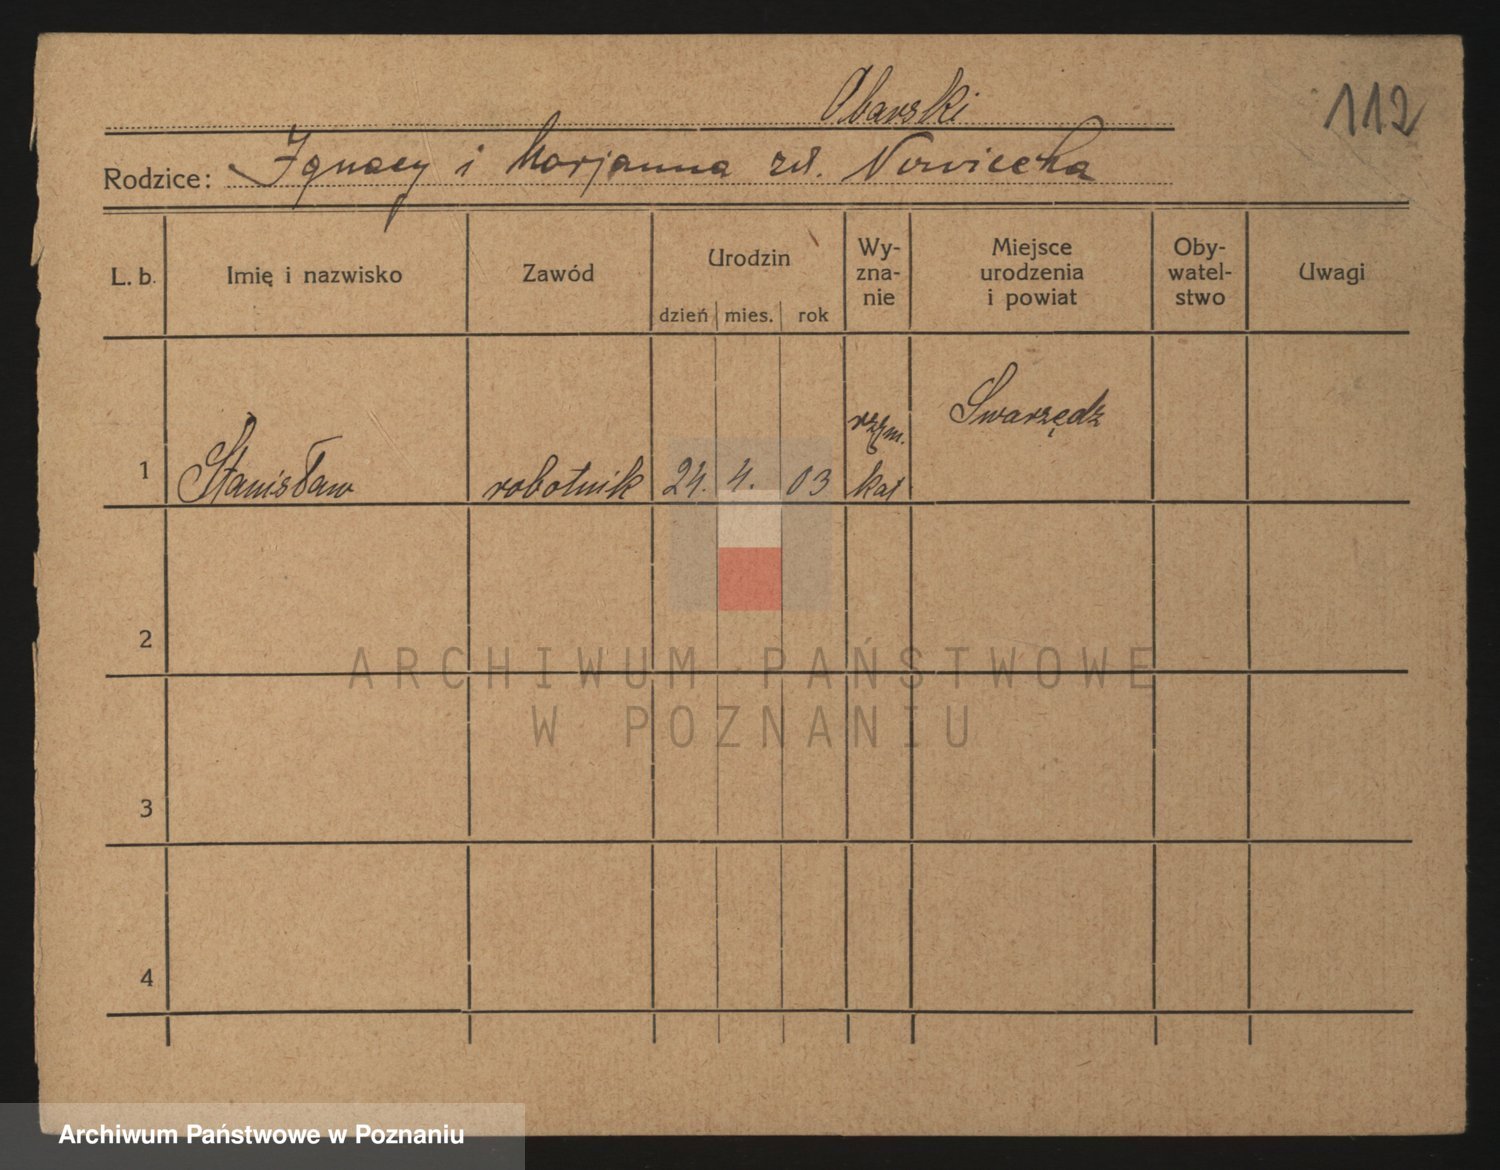 112
Obarski
Rodzice: Ignacy i Marjanna zd. Nowicka
L. b. Imię i nazwisko Zawód Urodzin dzień mies. rok Wy-zna-nie Miejsce urodzenia i powiat Oby-watel-stwo Uwagi
1 Stanisław robotnik 24. 4. 03 rzym. kat Swarzędz
2
ARCHIWUM PAŃSTWOWE
W POZNANIU
3
4
Archiwum Państwowe w Poznaniu